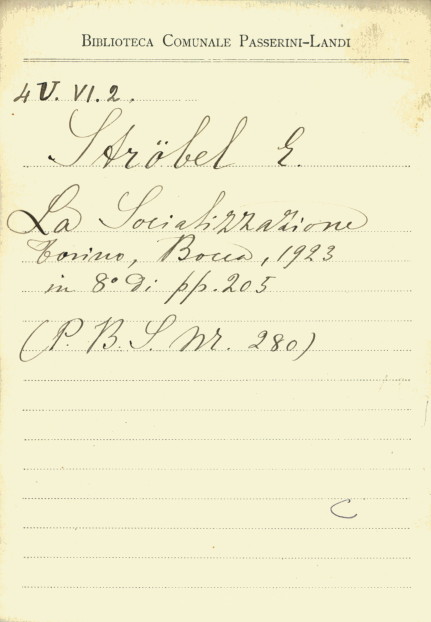 BIBLIOTECA COMUNALE PASSERINI-LANDI
4 U. VI. 2.
Ströbel E.
La Socializzazione
Torino, Bocca, 1923
in 8° di pp. 205
(P. B. S. Nr. 280)
C